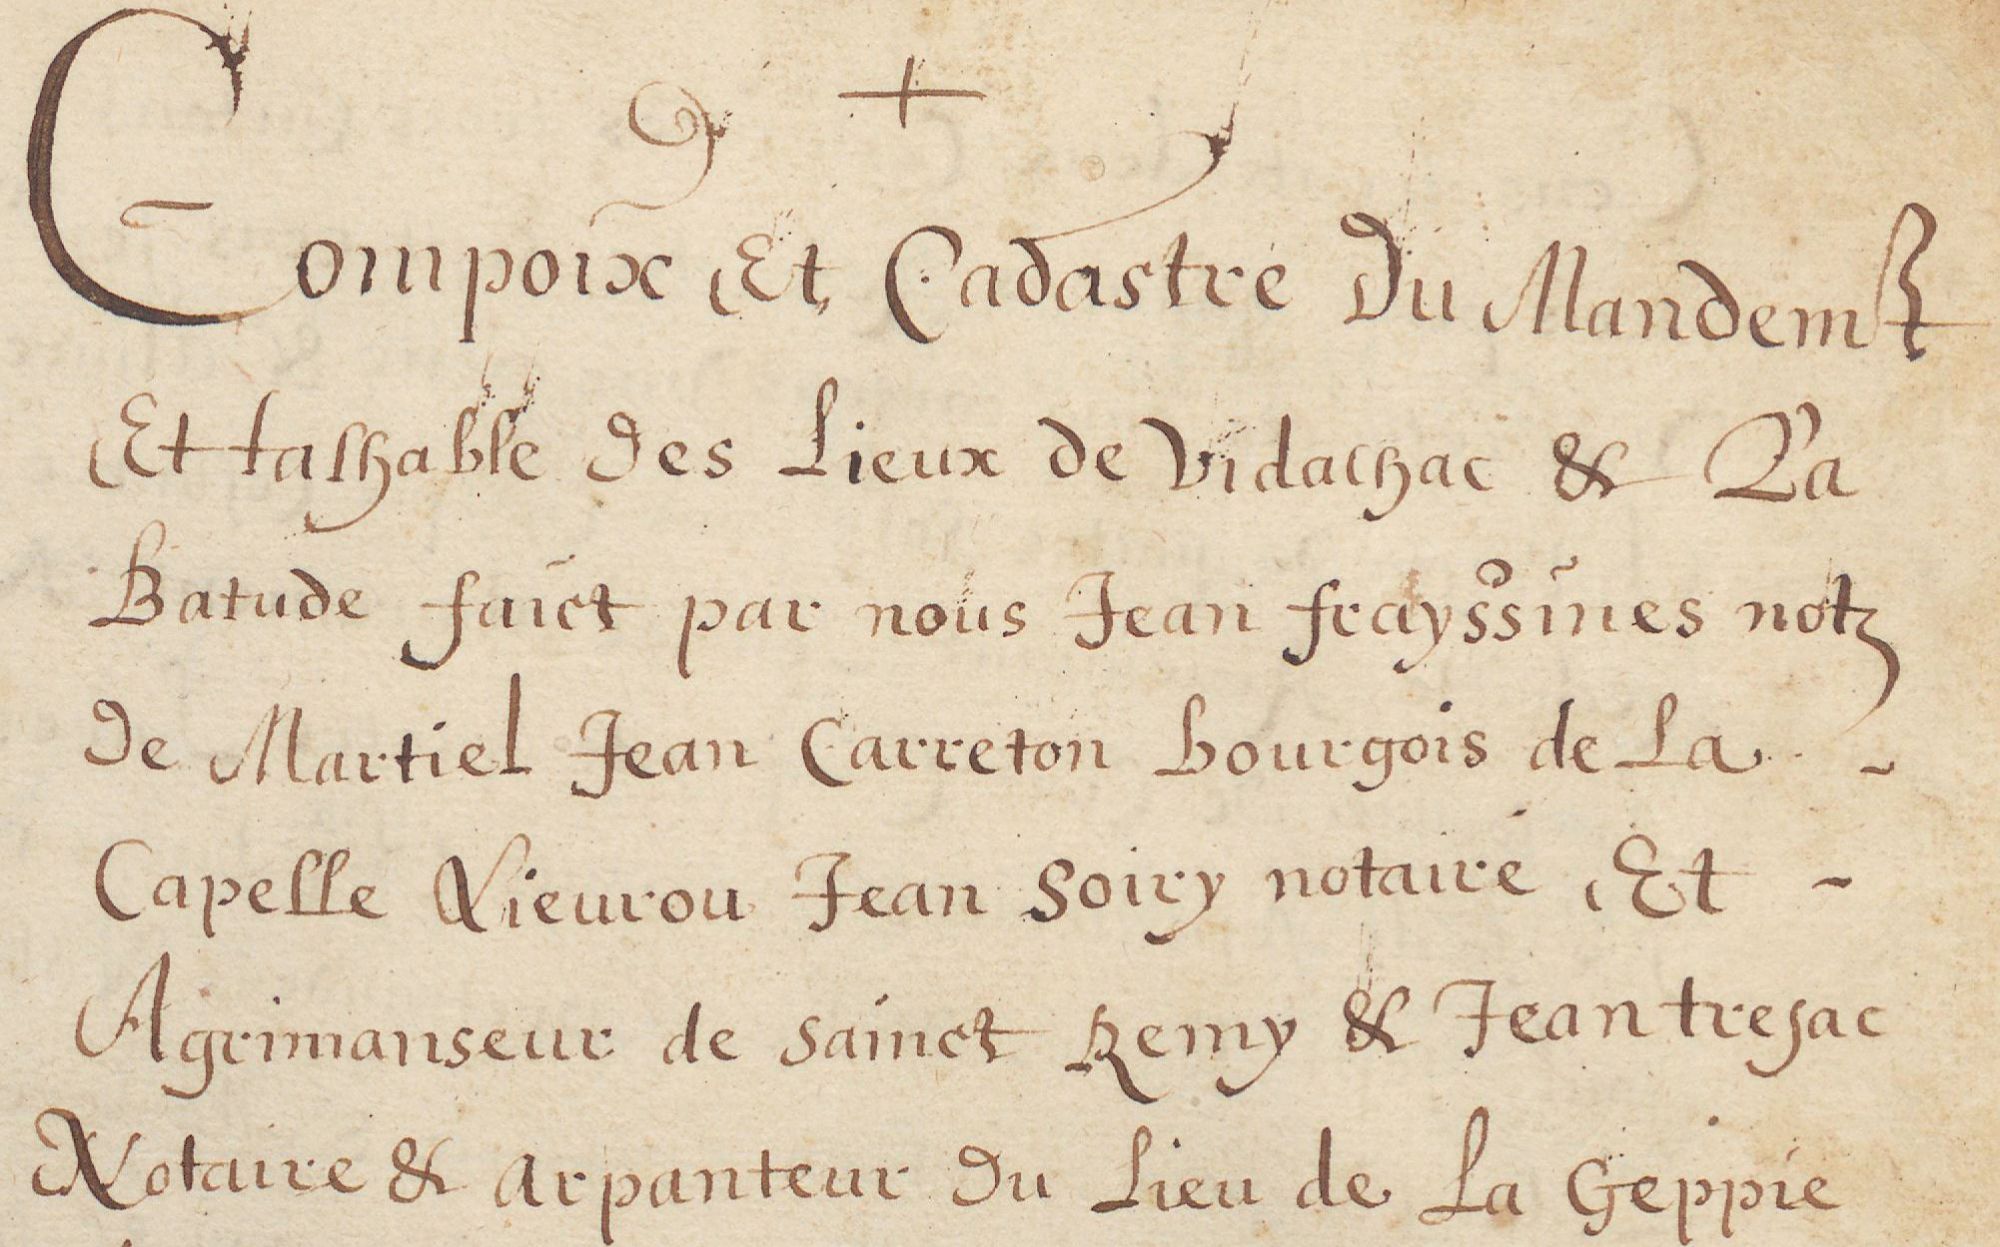 +
Compoix Et Cadastre Du Mandemt
Et taihable des Lieux de Vidalhac & La
Batude faict par nous Jean frayssines not
de Martiel Jean Carreton bourgois de La
Capelle Nieurou Jean Soiry notaire Et
Agrimanseur de sainct Remy & Jean tresac
Notaire & arpanteur du Lieu de La Geppie